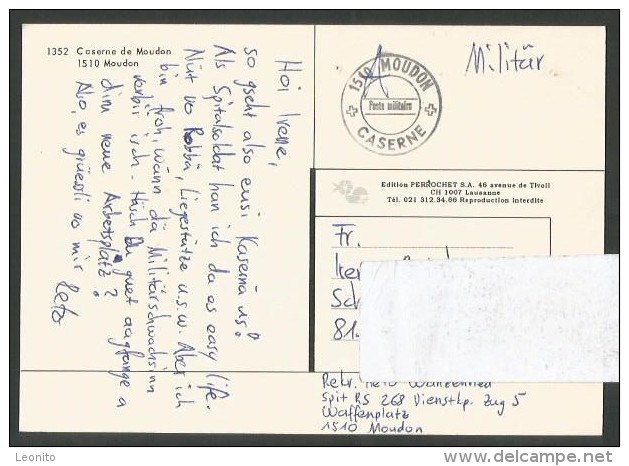 1352 Caserne de Moudon
1510 Moudon
Hoi Irene,
so gseht also eusi Kasernä us!
Als Spitalsoldat han ich da es easy life.
Nüt vo Robbä, Liegestütze u.s.w. Aber ich
bin froh, wänn dä Militärschwachsinn
verbii isch - Häsch Du guet aagfange a
dim neue Arbetsplatz?
Also, es grüessli vo mir Reto
1510 MOUDON
Poste militaire
CASERNE
A
Militär
Edition PERROCHET S.A. 46 avenue de Tivoli
CH 1007 Lausanne
Tél. 021 312.34.66 Reproduction interdite
Fr.
81
Rekr. Reto
Spit RS 268 Dienstkp. Zug 5
Waffenplatz
1510 Moudon
Leonito
www.delcampe.net